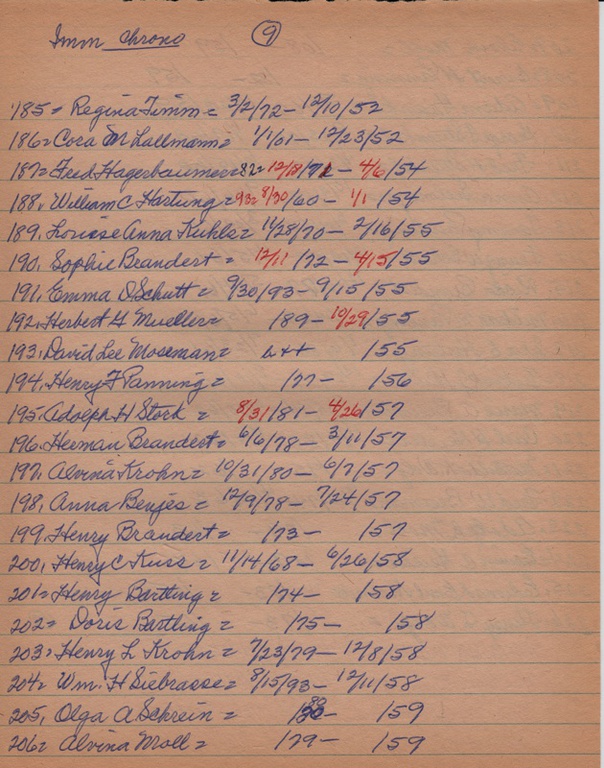 Imm Chrono 9
185= Regina Timm = 3/2/72 - 12/10/52
186= Cora M Lallmann = 1/1/01 - 12/23/52
187= Fred Hagerbaumer = 82= 12/18/71 - 4/6/54
188, William C Hartung = 93= 8/30/60 - 1/1/54
189, Louise Anna Kuhls = 11/28/70 - 2/16/55
190, Sophie Brandert = 12/11/72 - 4/15/55
191, Emma D Schutt = 9/30/93 - 9/15/55
192, Herbert G Mueller = 189 - 10/29/55
193, David Lee Moseman = /55
194, Henry F Panning = /77 - /56
195, Adolph H Stork = 8/31/81 - 4/26/57
196, Herman Brandert = 6/6/78 - 3/11/57
197, Alvina Krohn = 10/31/80 - 6/7/57
198, Anna Benjes = 12/9/78 - 7/24/57
199, Henry Brandert = /73 - /57
200, Henry C Kuss = 11/14/68 - 6/26/58
201= Henry Bartling = /74 - /58
202= Doris Bartling = /75 - /58
203= Henry L Krohn = 7/23/79 - 12/8/58
204= Wm. H Siebrasse = 8/15/93 - 12/11/58
205, Olga A Schrein = - /59
206= Alvina Moll = /79 - /59